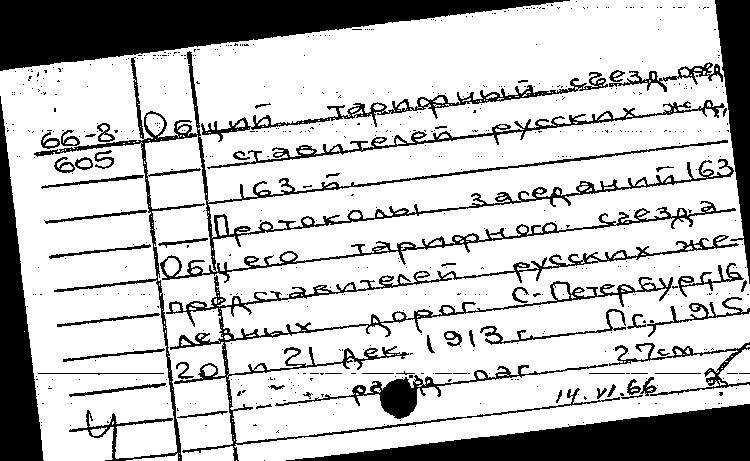 66-8
605
Общий тарифный съезд пред
ставителей русских ж.д.,
163-й.
Протоколы заседаний 163
Общего тарифного съезда
представителей русских же-
лезных дорог. С-Петербург, 16,
20 и 21 дек. 1913 г. Пг., 1915.
разд. паг. 27см
14.VI.66
Ч